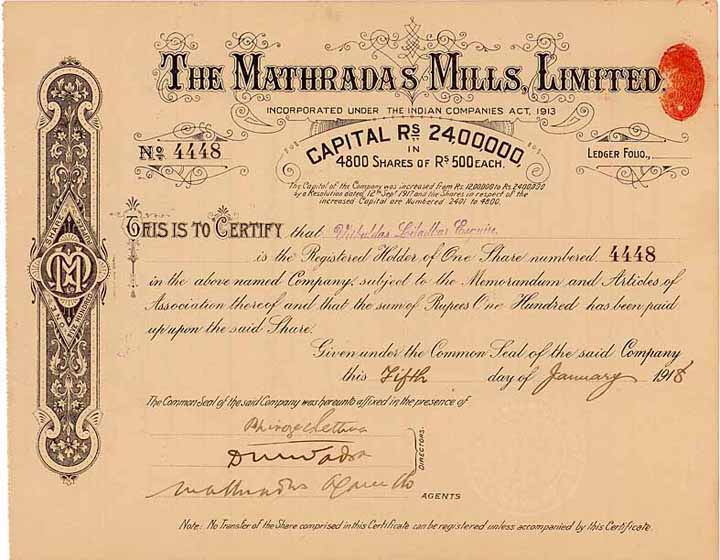 THE MATHRADAS MILLS, LIMITED.
INCORPORATED UNDER THE INDIAN COMPANIES ACT, 1913
CAPITAL RS 24,00000,
IN
4800 SHARES OF RS 500 EACH.
No 4448
LEDGER FOLIO.,
The Capital of the Company was increased from Rs. 1200000 to Rs. 2400000
by a Resolution dated 12th Sept 1917 and the Shares in respect of the
increased Capital are Numbered 2401 to 4800.
THIS IS TO CERTIFY that Vithaldas Liladhar Esquire.
is the Registered Holder of One Share numbered 4448
in the above named Company, subject to the Memorandum and Articles of
Association thereof and that the sum of Rupees One Hundred has been paid
up upon the said Share.
Given under the Common Seal of the said Company
this Fifth day of January 1918
The Common Seal of the said Company was hereunto affixed in the presence of
DIRECTORS.
Mathradas
AGENTS
Note: No Transfer of the Share comprised in this Certificate can be registered unless accompanied by this Certificate.
SHARE